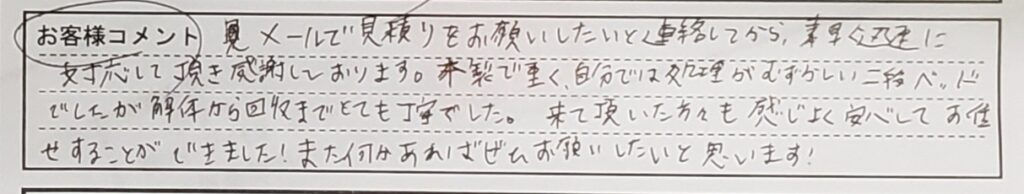 お客様コメント メールで見積りをお願いしたいと連絡してから、素早く迅速に
対応して頂き感謝しております。木製で重く、自分では処理がむずかしい二段ベッド
でしたが解体から回収までとても丁寧でした。 来て頂いた方々も感じよく安心してお任
せすることができました!また何かあればぜひお願いしたいと思います!